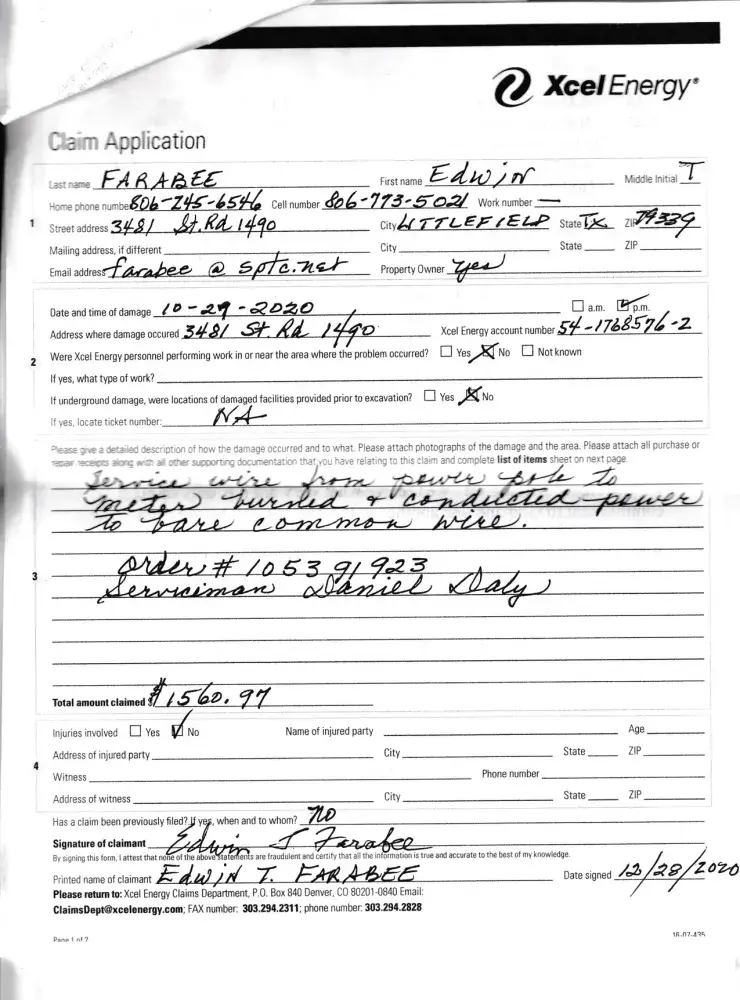 Xcel Energy®
Claim Application
Last name FARABEE First name Edwin Middle Initial T
Home phone number 806-745-6546 Cell number 806-773-5021 Work number —
1 Street address 3481 St. Rd 1490 City LITTLEFIELD State TX ZIP 79339
Mailing address, if different City State ZIP
Email address farabee @ sptc.net Property Owner Yes
Date and time of damage 10-29-2020 ☐ a.m. ☑ p.m.
Address where damage occured 3481 St. Rd. 1490 Xcel Energy account number 54-1768576-2
2 Were Xcel Energy personnel performing work in or near the area where the problem occurred? ☐ Yes ☒ No ☐ Not known
If yes, what type of work?
If underground damage, were locations of damaged facilities provided prior to excavation? ☐ Yes ☒ No
If yes, locate ticket number: NA
Please give a detailed description of how the damage occurred and to what. Please attach photographs of the damage and the area. Please attach all purchase or
repair receipts along with all other supporting documentation that you have relating to this claim and complete list of items sheet on next page.
Service wire from power pole to
meter burned + conducted power
to bare common wire.
Order # 105391923
3 Serviceman Daniel Daly
Total amount claimed $ 1560.97
Injuries involved ☐ Yes ☑ No Name of injured party Age
Address of injured party City State ZIP
4 Witness Phone number
Address of witness City State ZIP
Has a claim been previously filed? If yes, when and to whom? No
Signature of claimant Edwin T Farabee
By signing this form, I attest that none of the above statements are fraudulent and certify that all the information is true and accurate to the best of my knowledge.
Printed name of claimant EDWIN T. FARABEE Date signed 12/28/2020
Please return to: Xcel Energy Claims Department, P.O. Box 840 Denver, CO 80201-0840 Email:
ClaimsDept@xcelenergy.com; FAX number: 303.294.2311; phone number: 303.294.2828
Page 1 of 2 16-07-435